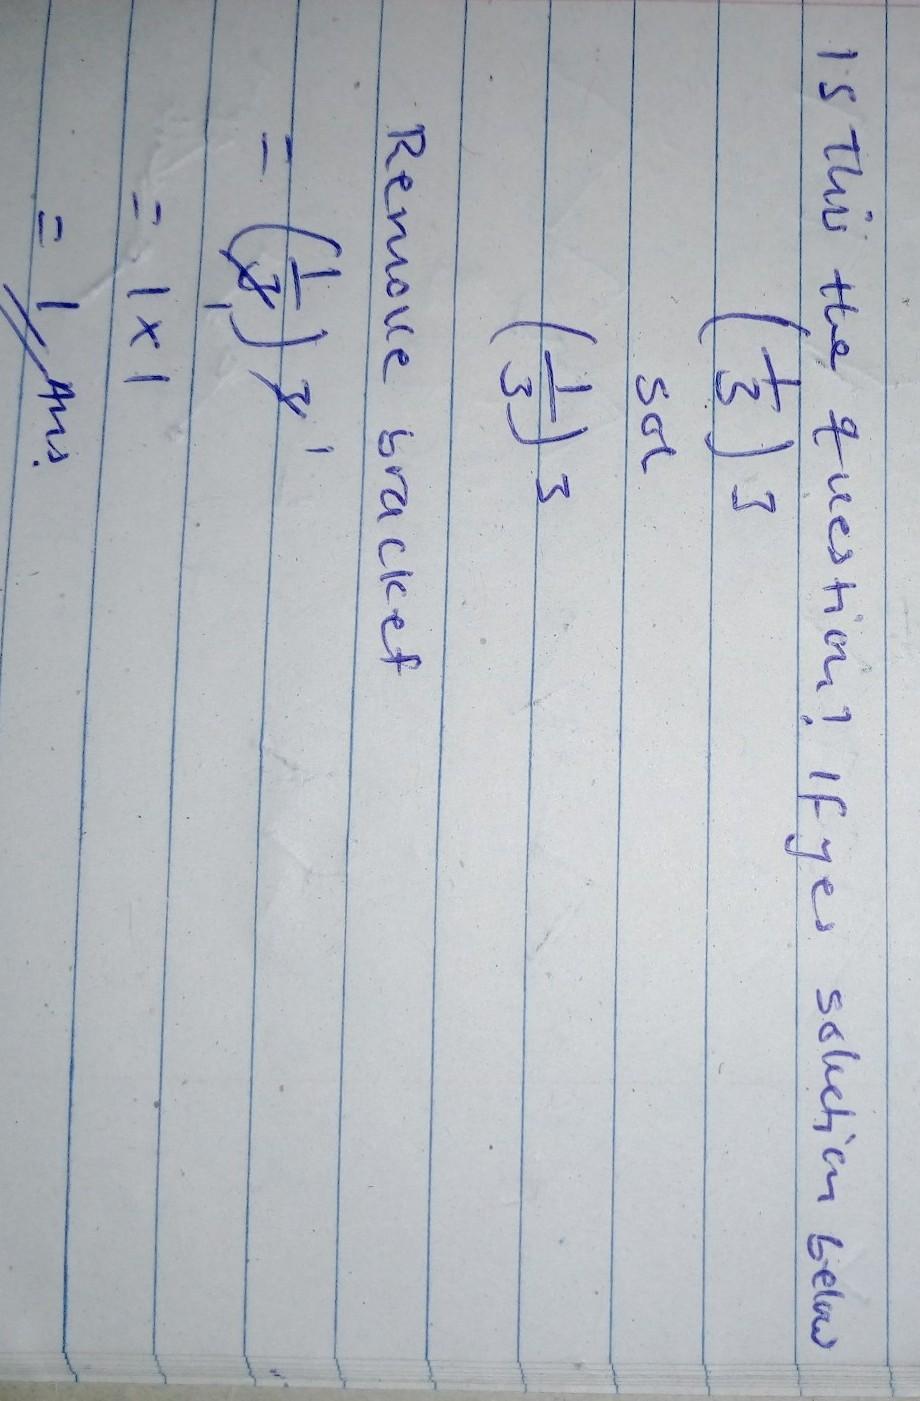 Is this the question? If yes solution below
(1/3) 3
Sol
(1/3) 3
Remove bracket
= (1/3) 3
1 1
= 1 x 1
= 1 Ans.